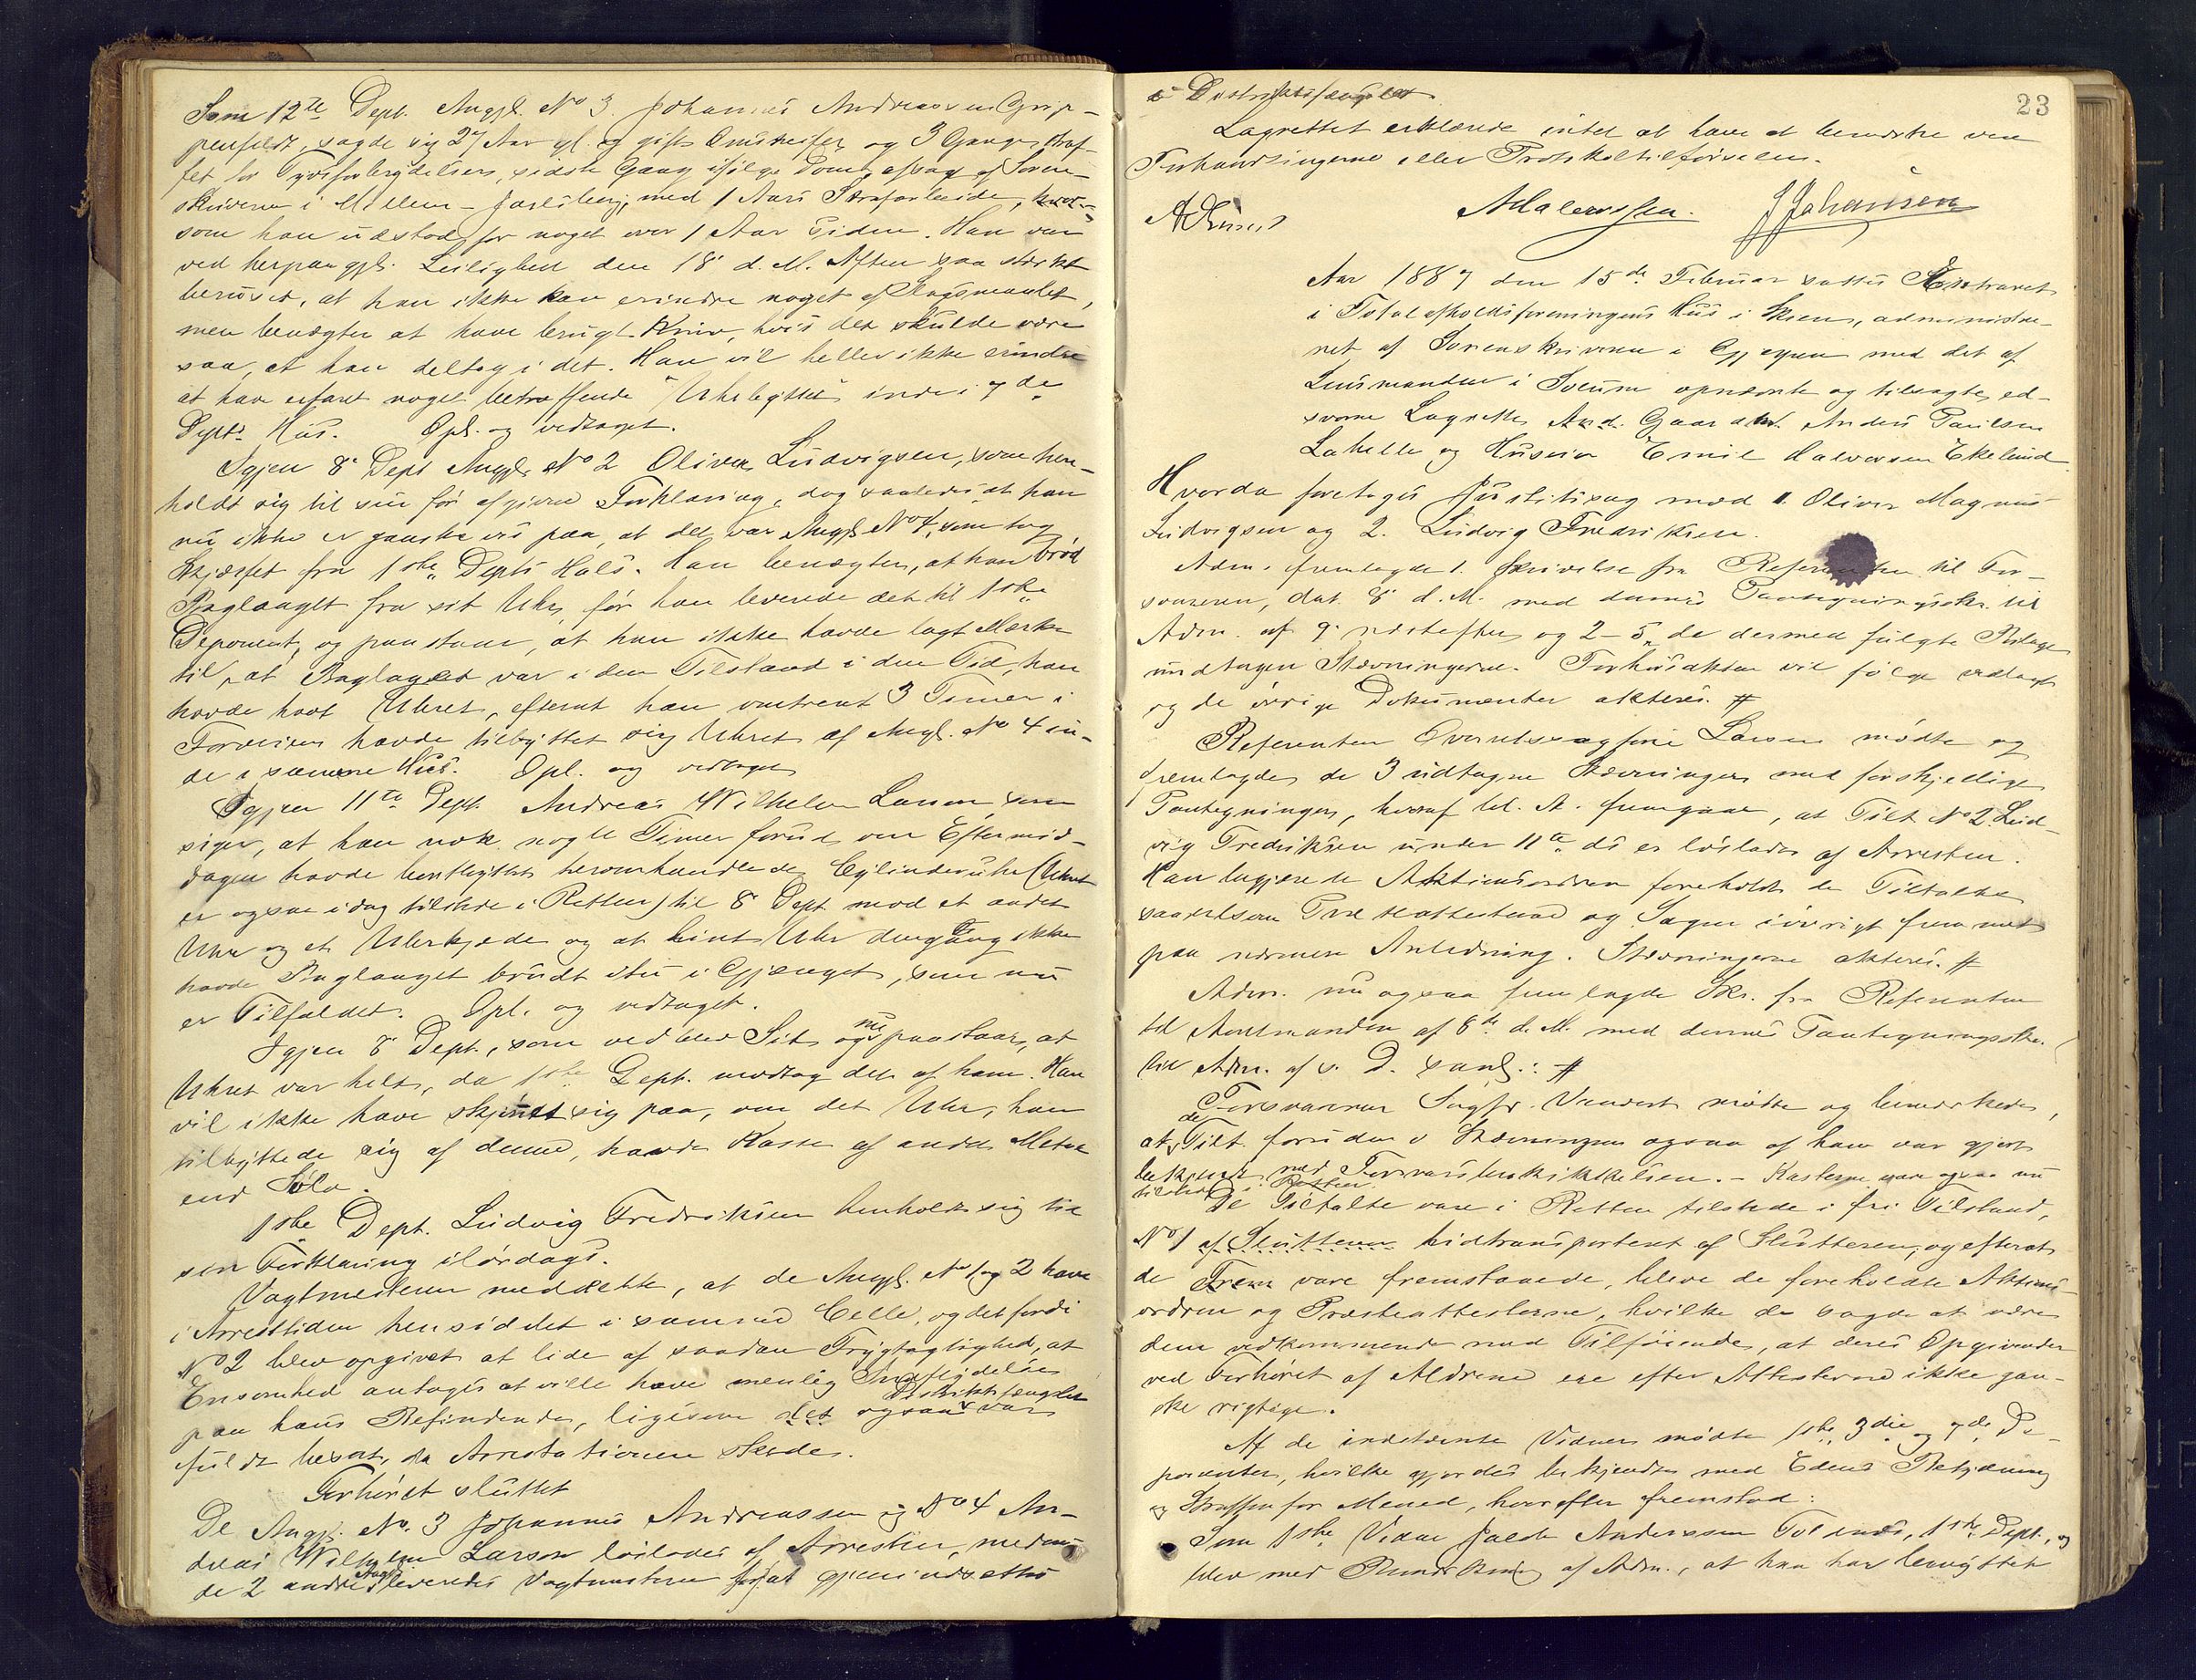 Som 12te Dept. Angjl. No 3. Johannes Andreassen Grip-
penfeldt, sagde sig 27 Aar gl. og gift Omstreifer og 3 Gange straf-
fet for Tyvsforbrydelser, sidste Gang ifølge Dom afsagt af Soren-
skriveren i Mellem-Jarlsberg, med 1 Aars Strafarbeide,
som han udstod for noget over 1 Aar siden. Han var
ved herpaagjl. Leilighed den 18 d. M. Aften saa stærkt
beruset, at han ikke kan erindre noget af Slagsmaalet,
men benægter at have brugt Kniv, hvis det skulde være
saa, at han deltog i det. Han vil heller ikke erindre
at have erfaret noget betræffende Uhrbyttet inde i 7de
Depts Hus. Opl. og vedtaget.
Igjen 8 Dept Angjl. No 2 Oliver Ludvigsen, som hen-
holdt sig til sin før afgivne Forklaring, dog saaledes at han
nu ikke er ganske vis paa, at det var Angjl. No 4, som tog
Skjærfet fra 1ste Depts Hals. Han benægter, at han brød
Baglaaget fra sit Uhr, før han leverede det til 1ste
Deponent, og paastaar, at han ikke havde lagt Mærke
til, at Baglaget var i den Tilstand i den Tid, han
havde havt Uhret, efterat han omtrent 3 Timer i
Forveien havde tilbyttet sig Uhret af Angl. No 4 in-
de i samme Hus. Opl. og vedtaget
Igjen 11te Dept. Andreas Wilhelm Larsen, som
siger, at han nok nogle Timer forud om Eftermid-
dagen havde bortbyttet heromhandlede Cylinderuhr (Uhret
er ogsaa idag tilstede i Retten) til 8 Dept mod et andet
Uhr og et Uhrkjæde og at hint Uhr dengang ikke
havde Baglaaget brudt itu i Gjænget, som nu
er Tilfældet. Opl. og vedtaget.
Igjen 8 Dept., som vedblev Sit og nu paastaar, at
Uhret var helt, da 1ste Dept. modtog det af ham. Han
vil ikke have skjønt sig paa, om det Uhr, han
tilbyttede sig af denne, havde Kasse af andet Metal
end Sølv.
1ste Dept. Ludvig Fredriksen henholdt sig til
sin Forklaring ilørdags.
Vagtmesteren meddelte, at de Angjl. No 1 og 2 have
i Arresttiden hensiddet i samme Celle, og det fordi
No 2 blev opgivet at lide af saadan Frygtagtighed, at
Ensomhed antoges at ville have menlig Indflydelse
paa hans Befindende, ligesom det ogsaa var
Distriktsfængslet
fuldt besat, da Arrestationen skede.
Forhøret sluttet
De Angjl. No. 3 Johannes Andreassen og No 4 An-
dreas Wilhelm Larsen løslodes af Arresten, medens
de 2 andre Angjl. leveredes Vagtmesteren for at gjenindsættes
i Distriktsfængslet
23
Lagrettet erklærede intet at have at bemærke ved
Forhandlingerne eller Protokoltilførselen.
A Halvorssen. J Johansen
Aar 1887 den 15de Februar sattes Extraret
i Totalafholdsforeningens Hus i Skien, administre-
ret af Sorenskriveren i Gjerpen med det af
Lensmanden i Solum opnævnte og tilsagte, ed-
svorne Lagrette, And. Gaardm. Anders Paulsen
Lahelle og Huseier Emil Halvorsen Ekelund.
Hvorda foretoges Justitssag mod 1. Oliver Magnus
Ludvigsen og 2. Ludvig Fredriksen.
Adm. fremlagde 1. Skrivelse fra Referenten til For-
svareren, dat. 8 d. M. med dennes Paategningsskr. til
Adm. af 9 næstefter og 2-5, de dermed fulgte Bilage
undtagen Stævningerne. Forhørsakten vil følge vedlagt
og de øvrige Dokumenter akteres. #
Referenten Overretssagfører Larsen mødte og
fremlagde de 3 udtagne Stævninger med forskjellige
Paategninger, hvoraf bl. A. fremgaar, at Tilt. No 2. Lud-
vig Fredriksen under 11te ds er løsladt af Arresten.
Han begjærede Aktionsordren foreholdt de Tiltalte
saavelsom Præsteattesterne og Sagen iøvrigt fremmet
paa nærmere Anledning. Stævningerne akteres. #
Adm. nu ogsaa fremlagde Skr. fra Referenten
til Amtmanden af 8de d. M. med dennes Paategningsskr.
til Adm. af s. D. saal.: #
Forsvareren Sagfr. Vauvert mødte og bemærkede,
at de Tilt. foruden v Stævningen ogsaa af ham var gjort
bekjendt med Forsvarsbeskikkelsen. – Kosterne vare ogsaa nu
tilstede i Retten.
De Tiltalte vare i Retten tilstede i fri Tilstand,
No 1 af Slutteren hidtransporteret af Slutteren, og efterat
de Frem vare fremstaaede, bleve de foreholdte Aktions-
ordren og Præsteattesterne, hvilke de sagde at være
dem vedkommende med Tilføiende, at deres Opgivender
ved Forhøret af Aldrene ere efter Attesterne ikke gan-
ske rigtige.
Af de indstævnte Vidner mødte 1ste, 3die og 7de De-
ponenter, hvilke gjordes bekjendte med Edens Betydning
og Straffen for Mened, hvorefter fremstod:
Som 1ste Vidne Andersen 1ste Dept., og
blev med af Adm., at han har benyttet